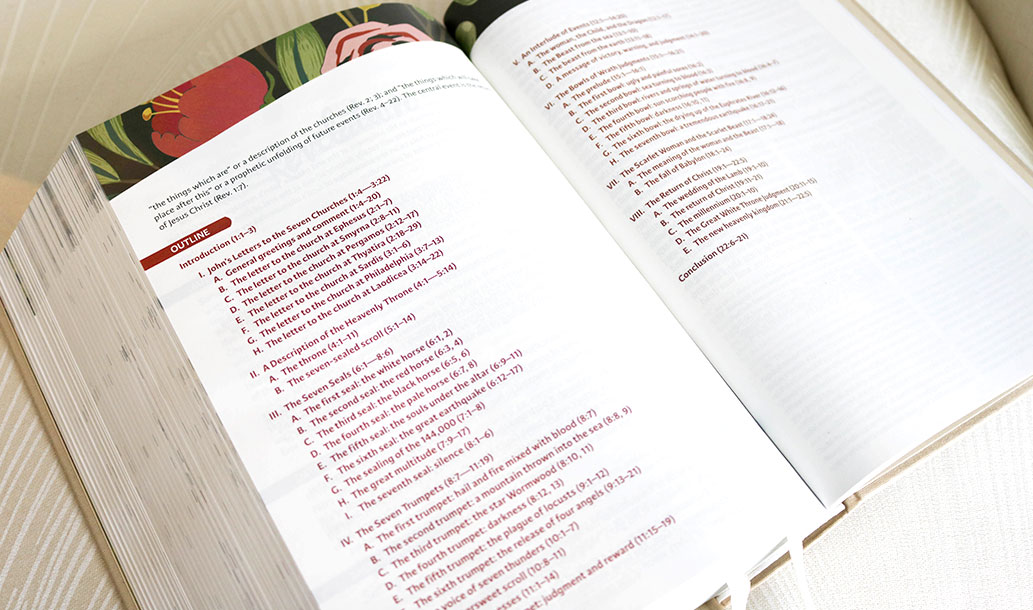 "the things which are" or a description of the churches (Rev. 2; 3); and "the things which
place after this" or a prophetic unfolding of future events (Rev. 4—22). The central event is
of Jesus Christ (Rev. 1:7).
OUTLINE
Introduction (1:1–3)
I. John's Letters to the Seven Churches (1:4—3:22)
A. General greetings and comment (1:4–20)
B. The letter to the church at Ephesus (2:1–7)
C. The letter to the church at Smyrna (2:8–11)
D. The letter to the church at Pergamos (2:12–17)
E. The letter to the church at Thyatira (2:18–29)
F. The letter to the church at Sardis (3:1–6)
G. The letter to the church at Philadelphia (3:7–13)
H. The letter to the church at Laodicea (3:14–22)
II. A Description of the Heavenly Throne (4:1—5:14)
A. The throne (4:1–11)
B. The seven-sealed scroll (5:1–14)
III. The Seven Seals (6:1—8:6)
A. The first seal: the white horse (6:1, 2)
B. The second seal: the red horse (6:3, 4)
C. The third seal: the black horse (6:5, 6)
D. The fourth seal: the pale horse (6:7, 8)
E. The fifth seal: the souls under the altar (6:9–11)
F. The sixth seal: the great earthquake (6:12–17)
G. The sealing of the 144,000 (7:1–8)
H. The great multitude (7:9–17)
I. The seventh seal: silence (8:1–6)
IV. The Seven Trumpets (8:7—11:19)
A. The first trumpet: hail and fire mixed with blood (8:7)
B. The second trumpet: a mountain thrown into the sea (8:8, 9)
C. The third trumpet: the star Wormwood (8:10, 11)
D. The fourth trumpet: darkness (8:12, 13)
E. The fifth trumpet: the plague of locusts (9:1–12)
The sixth trumpet: the release of four angels (9:13–21)
voice of seven thunders (10:1–7)
ersweet scroll (10:8–11)
esses (11:1–14)
et: judgment and reward (11:15–19)
V. An Interlude of Events (12:1—14:20)
A. The woman, the Child, and the Dragon
B. The Beast from the sea (13:1–10)
C. The beast from the earth
D. A message of victory, warning, and judgment
VI. The Bowls of Wrath Judgments (15:1—16:21)
A. The prelude (15:1—16:1)
B. The first bowl: ugly and painful sores (16:2)
C. The second bowl: sea turning to blood (16:3)
D. The third bowl: rivers and springs of water turning to blood
E. The fourth bowl: sun scorching people with fire (16:8, 9)
F. The fifth bowl: darkness (16:10, 11)
G. The sixth bowl: the drying up of the Euphrates River
H. The seventh bowl: a tremendous earthquake (16:17–21)
VII. The Scarlet Woman and the Scarlet Beast (17:1—18:24)
A. The meaning of the woman and the Beast (17:1–18)
B. The fall of Babylon (18:1–24)
VIII. The Return of Christ (19:1—22:5)
A. The wedding of the Lamb (19:1–10)
B. The return of Christ (19:11–21)
C. The millennium (20:1–10)
D. The Great White Throne judgment (20:11–15)
E. The new heavenly kingdom (21:1—22:5)
Conclusion (22:6–21)